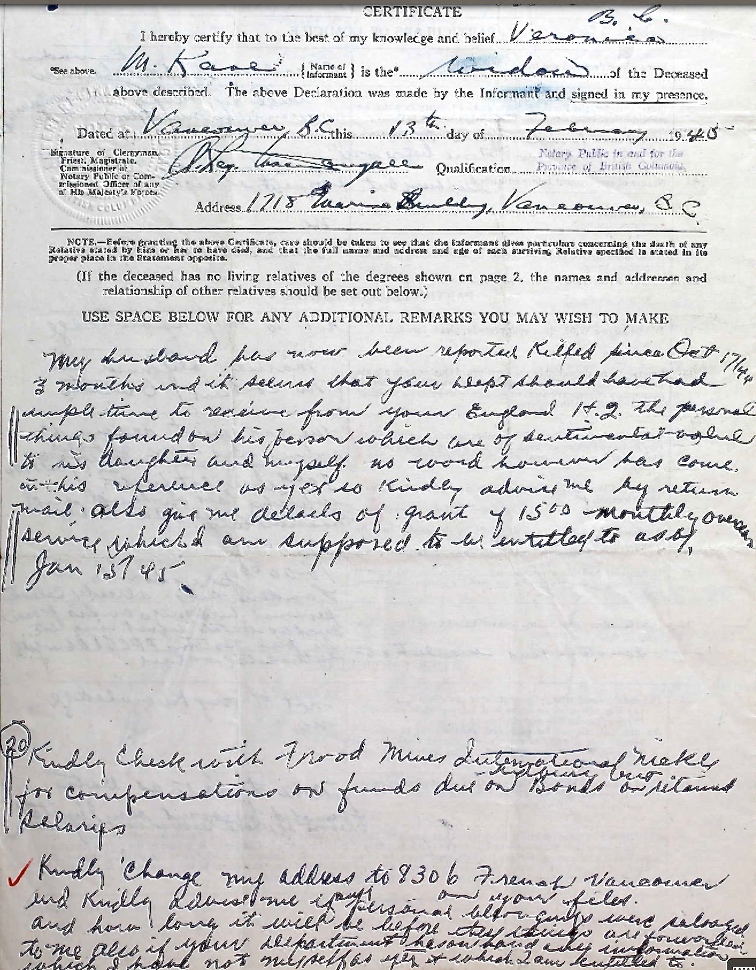 CERTIFICATE
B. C.
I hereby certify that to the best of my knowledge and belief Veronica
*See above. M. Kase {Name of Informant} is the* widow of the Deceased
above described. The above Declaration was made by the Informant and signed in my presence.
Dated at Vancouver, B.C. this 13th day of February 1945
Signature of Clergyman, Priest, Magistrate, Commissioner of Notary Public or Commissioned Officer of any of His Majesty's Forces.
Qualification Notary Public in and for the Province of British Columbia
Address 1718 Marine Building, Vancouver, B. C.
NOTE.—Before granting the above Certificate, care should be taken to see that the Informant gives particulars concerning the death of any
Relative stated by him or her to have died, and that the full name and address and age of each surviving Relative specified is stated in its
proper place in the Statement opposite.
(If the deceased has no living relatives of the degrees shown on page 2, the names and addresses and
relationship of other relatives should be set out below.)
USE SPACE BELOW FOR ANY ADDITIONAL REMARKS YOU MAY WISH TO MAKE
My husband has now been reported Killed since Oct 17/44
3 months and it seems that your dept should have had
ample time to receive from your England H.Q. the personal
things found on his person which are of sentimental value
to his daughter and myself. no word however has come
in this reference as yet so Kindly advise me by return
mail. also give me details of grant of 15 00 monthly overseas
service which I am supposed to be entitled to as by
Jan 13/45
20 Kindly Check with Frood Mines International Nickle
Sudbury Ont
for compensations or funds due on Bonds or returned
salaries
Kindly Change my address to 8306 French Vancouver
on your files.
and Kindly advise me if any personal belongings were salvaged
and how long it will be before these things are forwarded
to me also if your Department has on hand any information
which I have not myself as yet & which I am entitled to